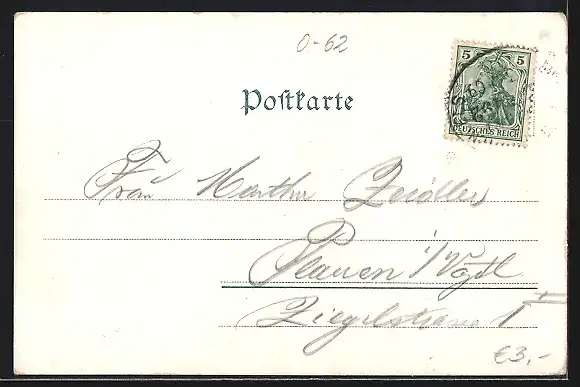 0-62
5 5
DEUTSCHES REICH
Postkarte
Frau Martha Zeidler
Plauen i/Vogtl
Ziegelstrasse 1
€3,-